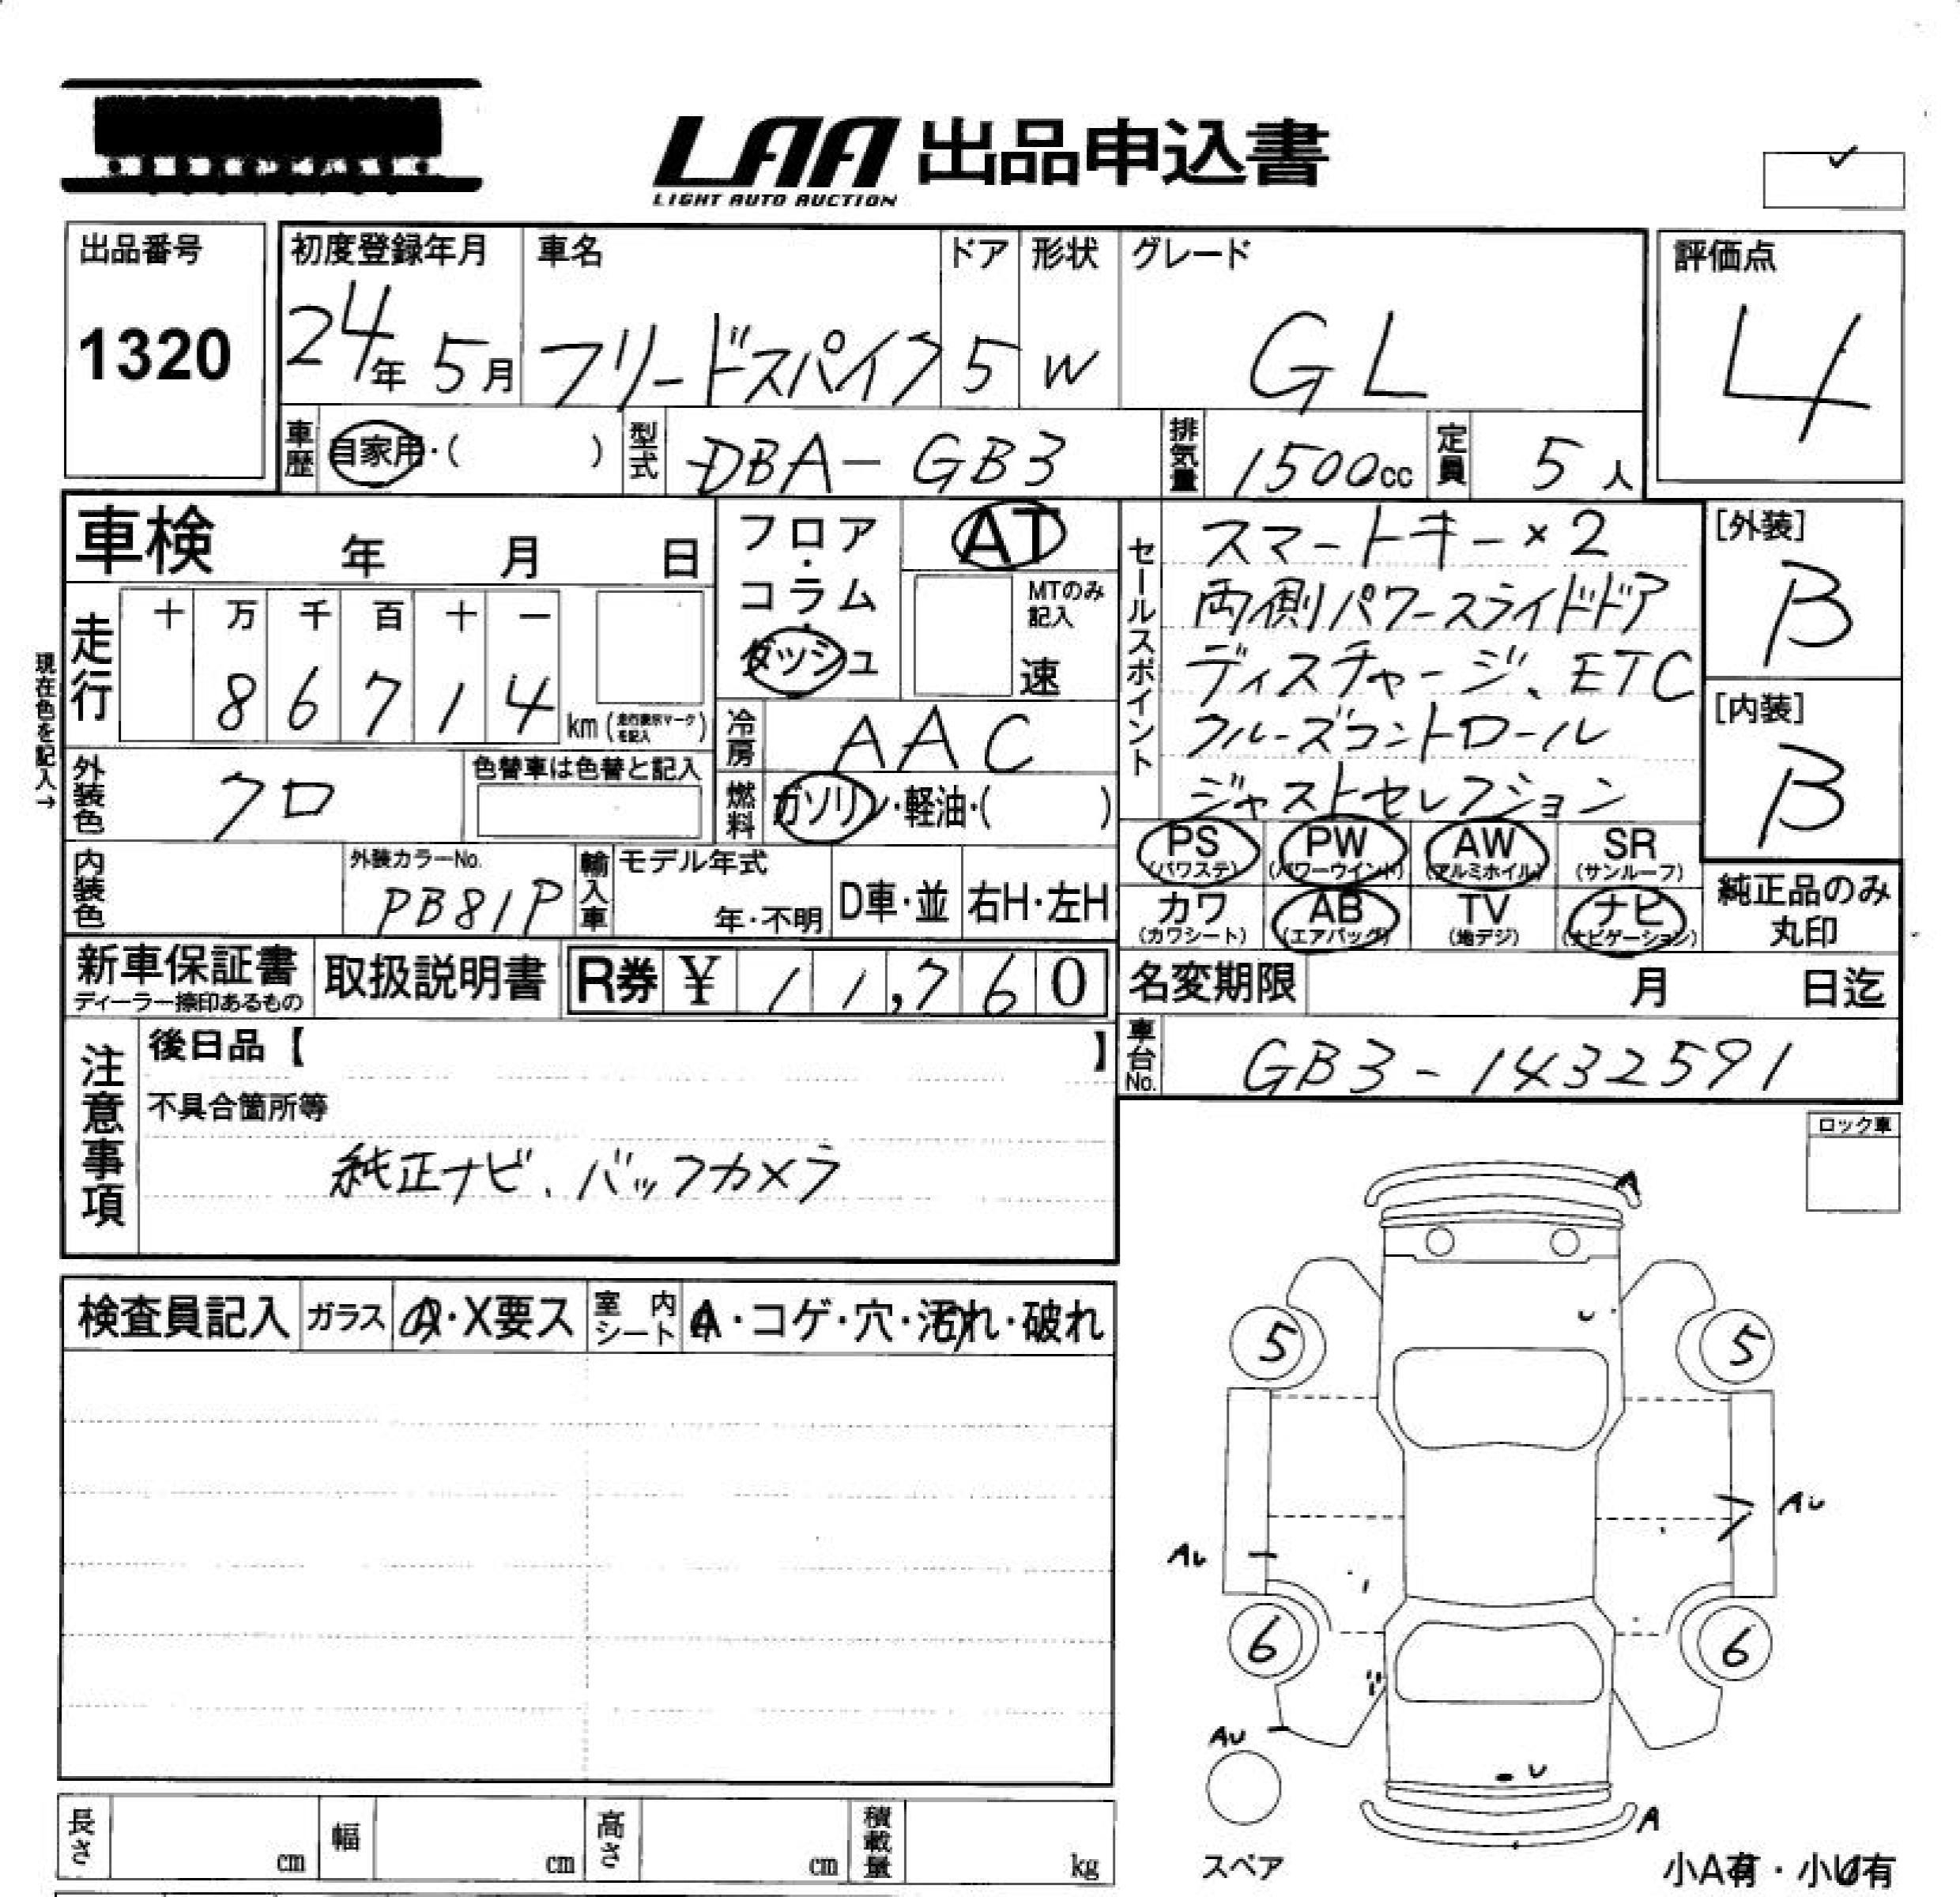 LAA 出品申込書
LIGHT AUTO AUCTION
出品番号
1320
初度登録年月
24年 5月
車名
フリードスパイク
ドア
5
形状
W
グレード
GL
評価点
4
車歴 自家用・( )
型式 DBA-GB3
排気量 1500cc
定員 5人
車検 年 月 日
現在色を記入→
走行
十 万 千 百 十 一
8 6 7 1 4 km(走行表示マークを記入)
フロア・コラム・ダッシュ
AT
MTのみ記入
速
冷房 AAC
燃料 ガソリン・軽油・( )
セールスポイント
スマートキー×2
両側パワースライドドア
ディスチャージ、ETC
クルーズコントロール
ジャストセレクション
[外装]
B
[内装]
B
外装色 クロ
色替車は色替と記入
内装色
外装カラーNo.
PB81P
輸入車
モデル年式
年・不明
D車・並
右H・左H
PS (パワステ)
PW (パワーウインド)
AW (アルミホイル)
SR (サンルーフ)
カワ (カワシート)
AB (エアバッグ)
TV (地デジ)
ナビ (ナビゲーション)
純正品のみ
丸印
新車保証書
ディーラー捺印あるもの
取扱説明書
R券 ¥ 11,760
名変期限 月 日迄
車台No. GB3-1432591
注意事項
後日品【 】
不具合箇所等
純正ナビ、バックカメラ
ロック車
検査員記入
ガラス A・X要ス
室内シート A・コゲ・穴・汚れ・破れ
A
U
5
5
AU
AU
6
6
AU
U
A
スペア
小A有・小U有
長さ cm
幅 cm
高さ cm
積載量 kg